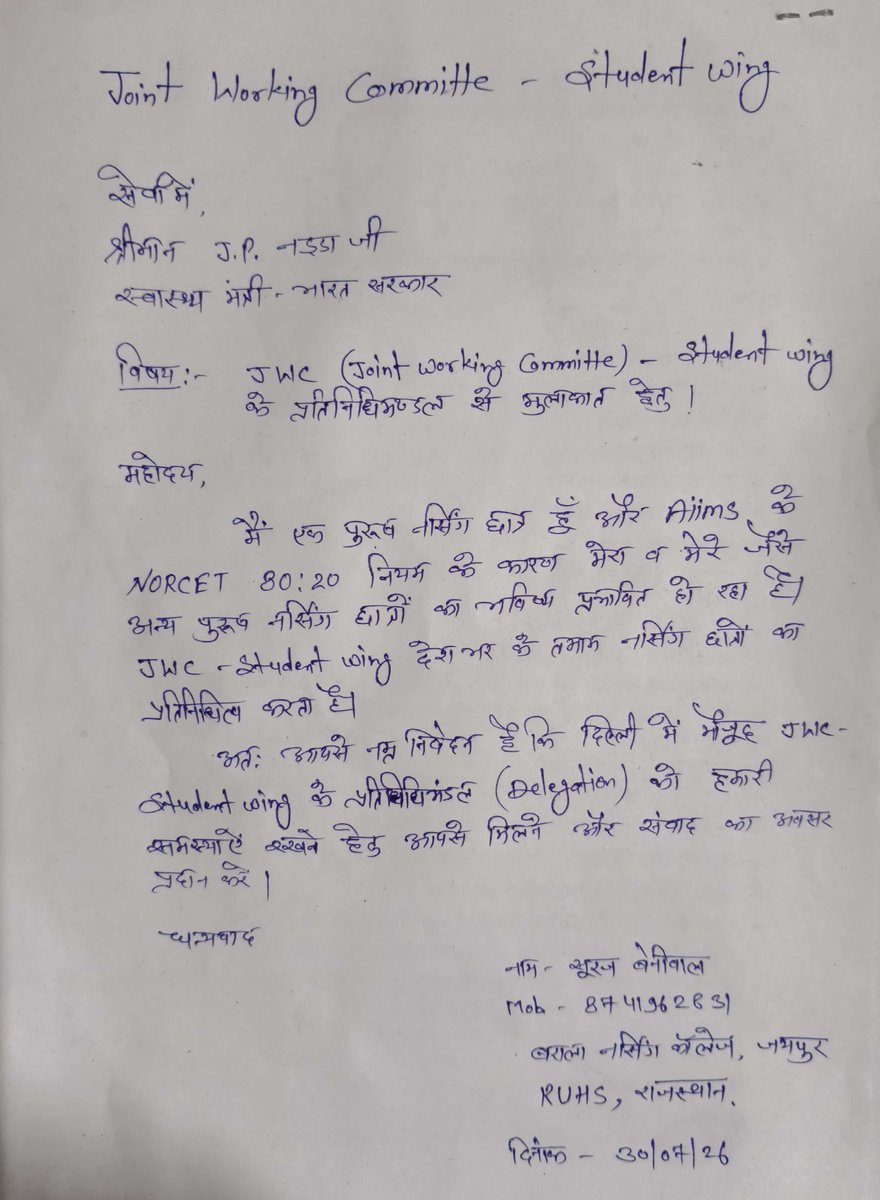 Joint Working Committe - Student wing
सेवा में,
श्रीमान J.P. नड्डा जी
स्वास्थ्य मंत्री - भारत सरकार
विषय :- JWC (Joint Working Committe) - Student wing
के प्रतिनिधिमण्डल से मुलाकात हेतु ।
महोदय,
मैं एक पुरूष नर्सिंग छात्र हूँ और Aiims के
NORCET 80:20 नियम के कारण मेरा व मेरे जैसे
अन्य पुरूष नर्सिंग छात्रों का भविष्य प्रभावित हो रहा है।
JWC - Student wing देश भर के तमाम नर्सिंग छात्रों का
प्रतिनिधित्व करता है।
अतः आपसे नम्र निवेदन है कि दिल्ली में मौजूद JWC -
Student wing के प्रतिनिधिमंडल (Delegation) को हमारी
समस्याऐं रखने हेतु आपसे मिलने और संवाद का अवसर
प्रदान करें ।
धन्यवाद
नाम - सूरज बेनीवाल
Mob - 8741962831
बराला नर्सिंग कॉलेज, जयपुर
RUHS, राजस्थान.
दिनांक - 30/07/26